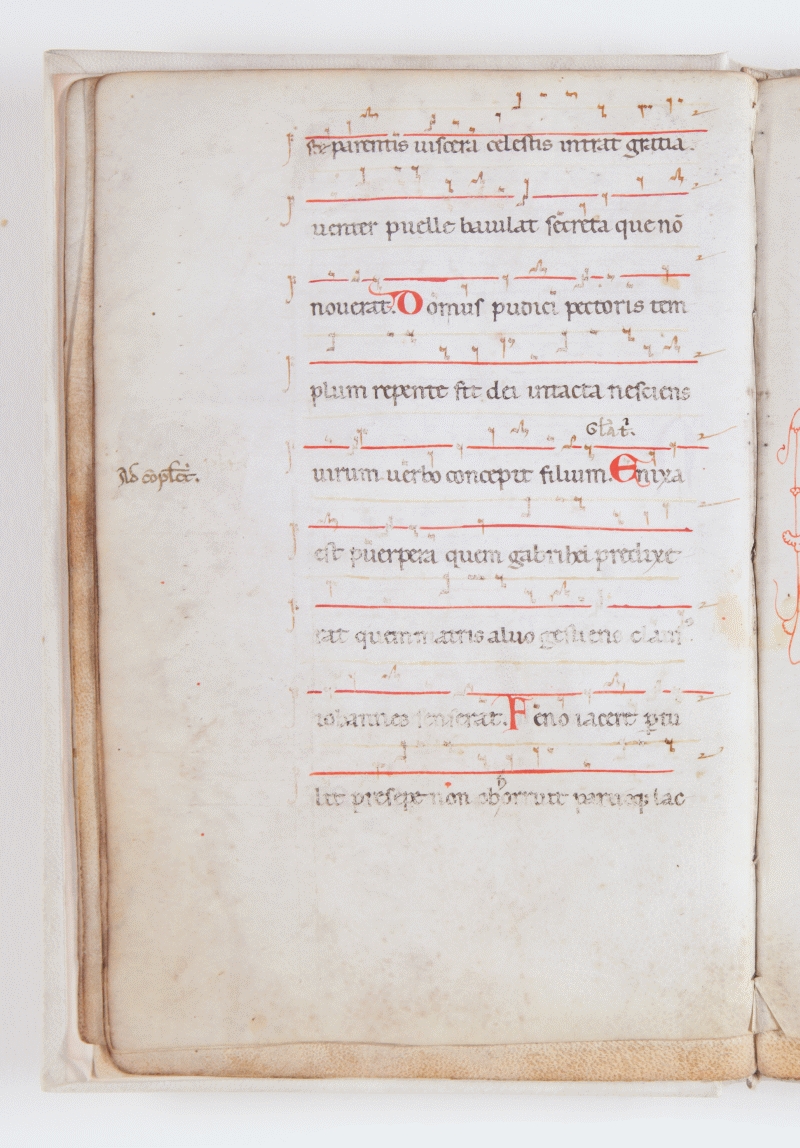 ste parentis uiscera celestis intrat gratia.
uenter puelle baiulat secreta que nō
nouerat. Domus pudici pectoris tem
plum repente fit dei intacta nesciens
uirum uerbo concepit filium. Enixa
est puerpera quem gabrihel predixe
rat quem matris aluo gestiens clausꝰ
iohannes senserat. Feno iacere ptu
lit presepe non abhorruit paruoqꝫ lac
Ad cōplet̄.